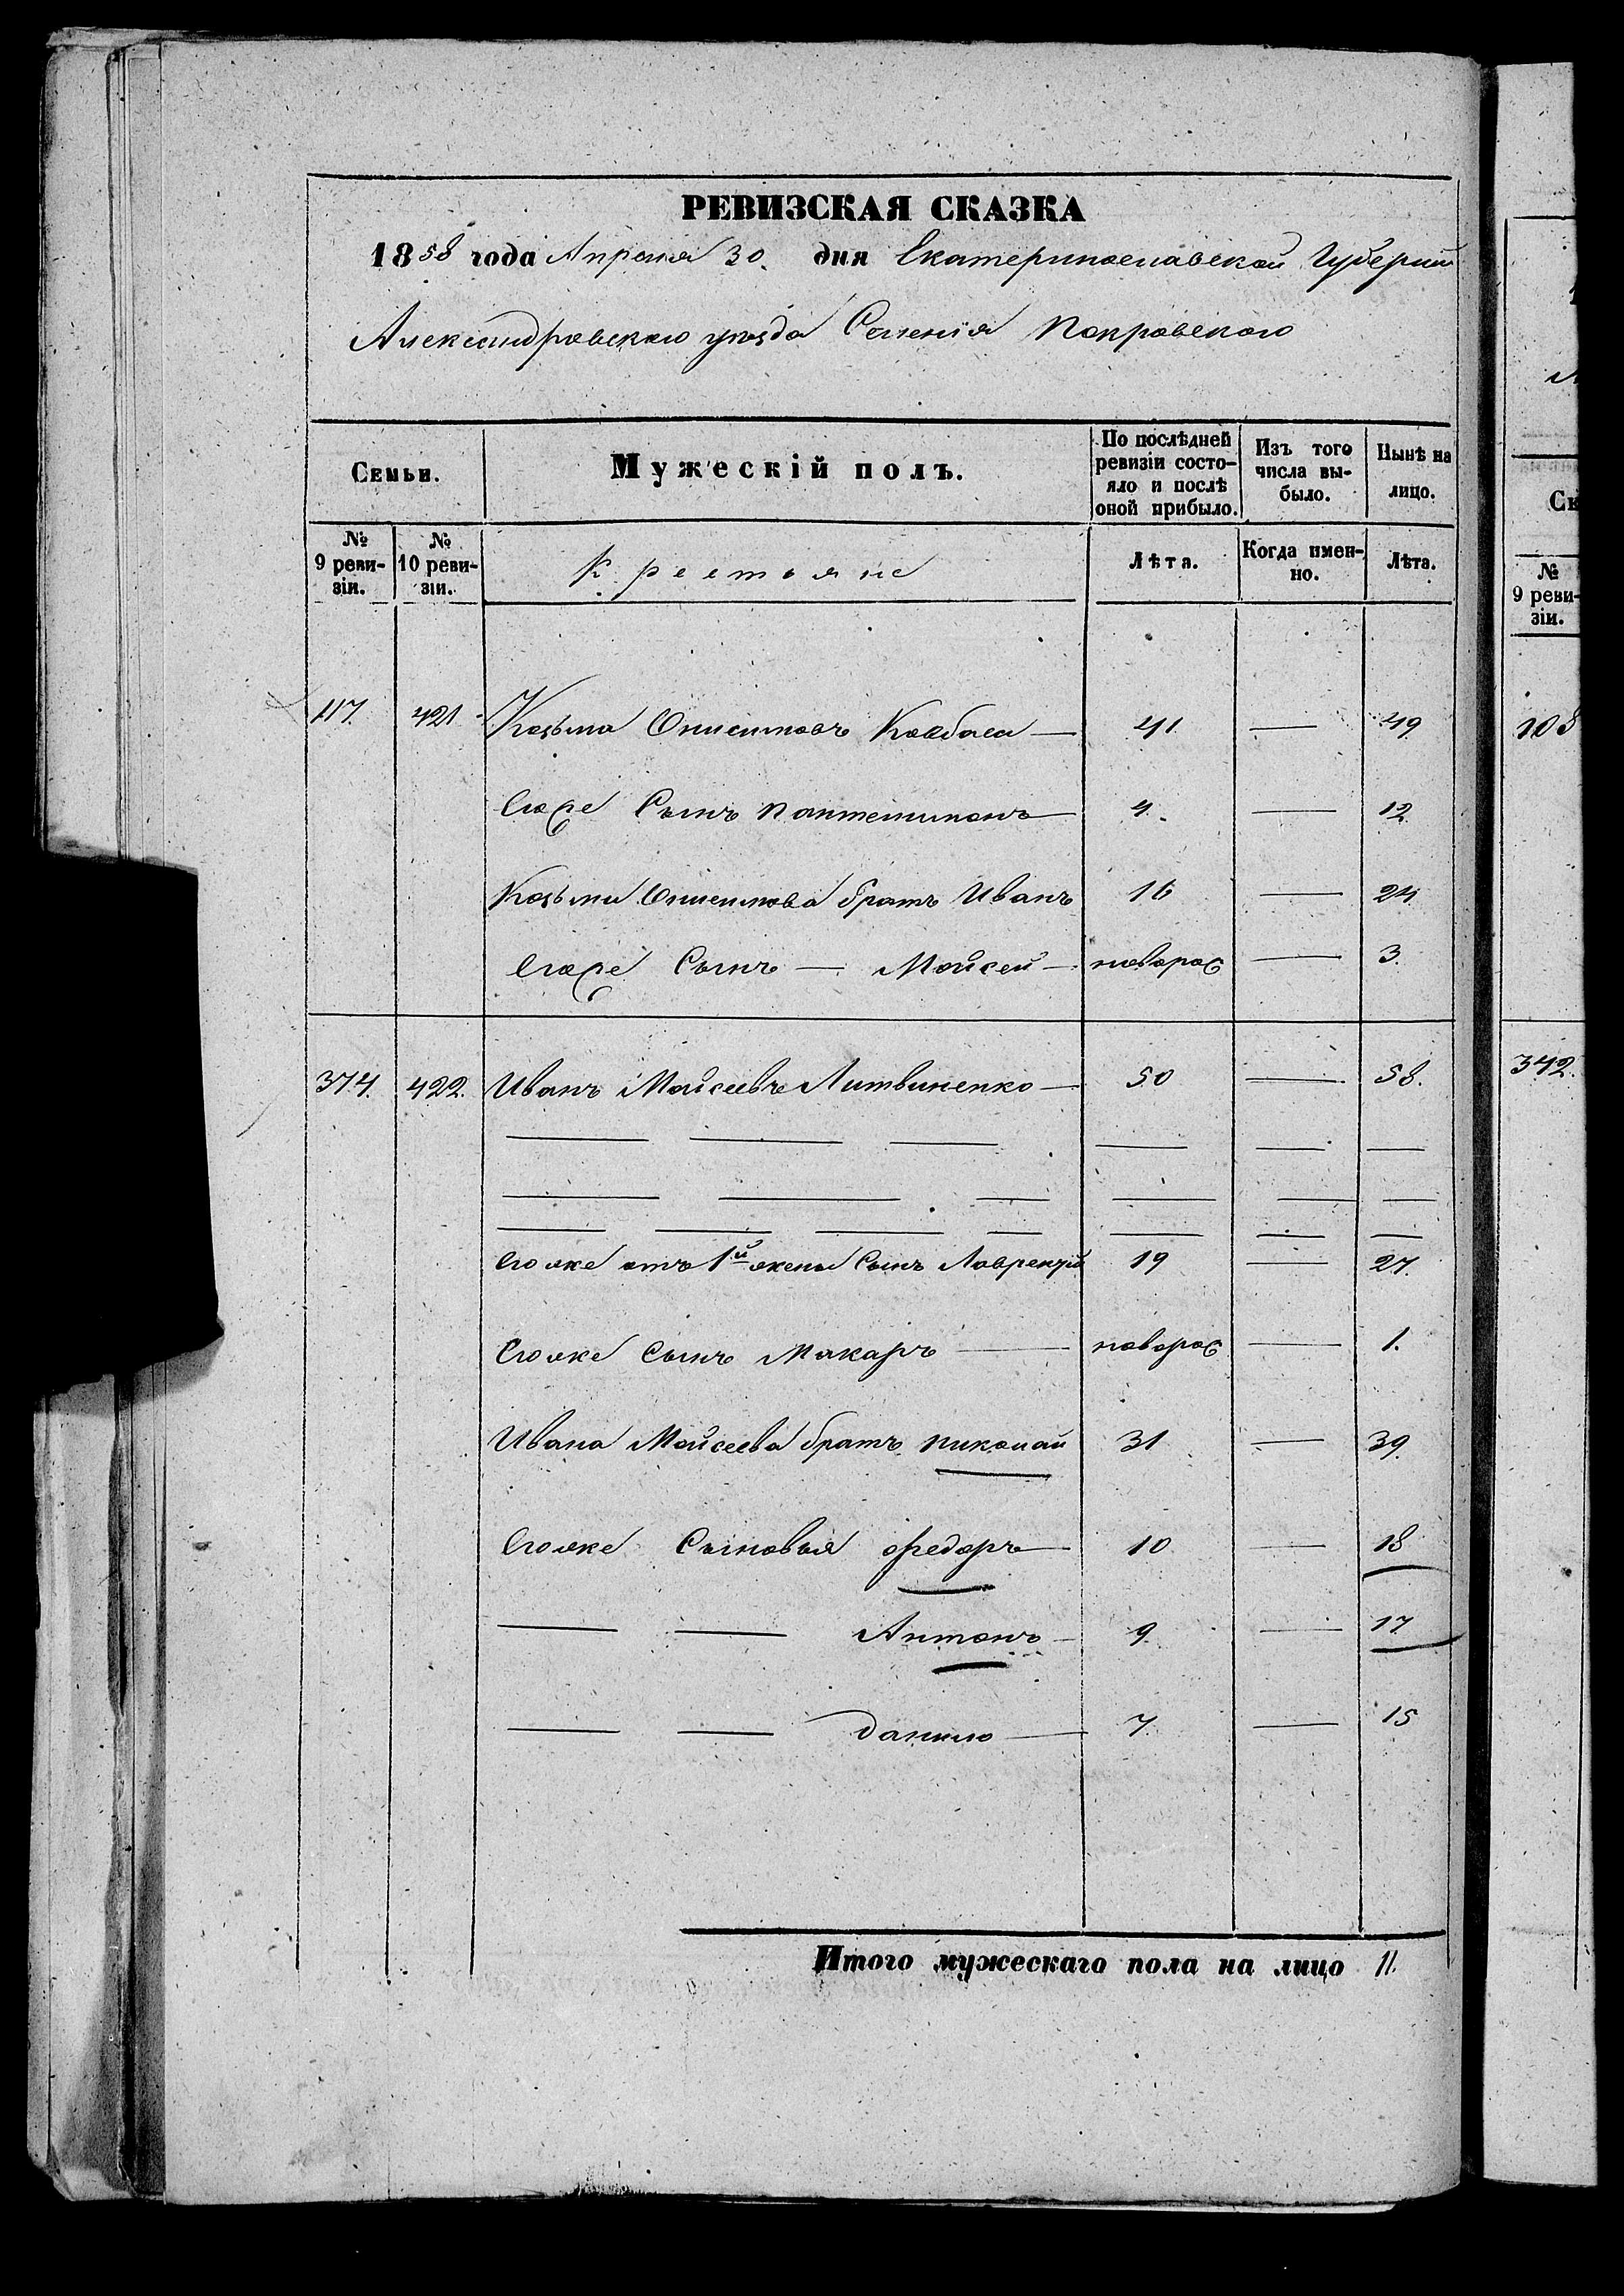 РЕВИЗСКАЯ СКАЗКА
1858 года Апреля 30. дня Екатеринославской Губернии
Александровского уезда Селенія Покровского
Семьи.
Мужескій полъ.
По послѣдней ревизіи состо-
яло и послѣ оной прибыло.
Изъ того числа вы-
было.
Нынѣ на лицо.
№ 9 реви-
зіи.
№ 10 реви-
зіи.
Крестьяне
Лѣта.
Когда имен-
но.
Лѣта.
117. 421 Козьма Онисимовъ Ковбаса — 41 — 49
Егоже Сынъ Пантелимонъ — 4. — 12
Козьмы Онисимова братъ Иванъ 16 — 24
Егоже Сынъ — Мойсей — новорож — 3.
374. 422. Иванъ Мойсеевъ Литвиненко — 50 — 58.
Егоже отъ 1й жены Сынъ Лаврентій 19 — 27.
Егоже Сынъ Макаръ — новорож — 1.
Ивана Мойсеева братъ Николай 31 — 39.
Егоже Сыновья Федоръ — 10 — 18
— — Антонъ — 9. — 17
— — Данило — 7. — 15
Итого мужескаго пола на лицо 11.
Ск
№ 9 реви-
зіи.
108
342.